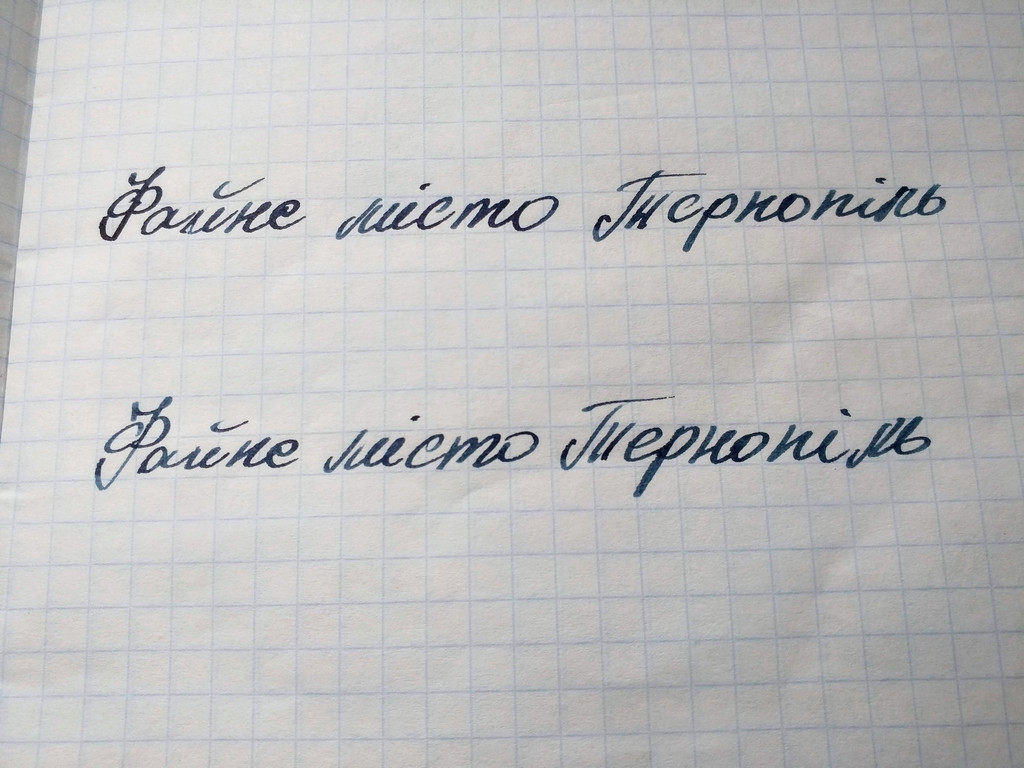 Файне місто Тернопіль
Файне місто Тернопіль